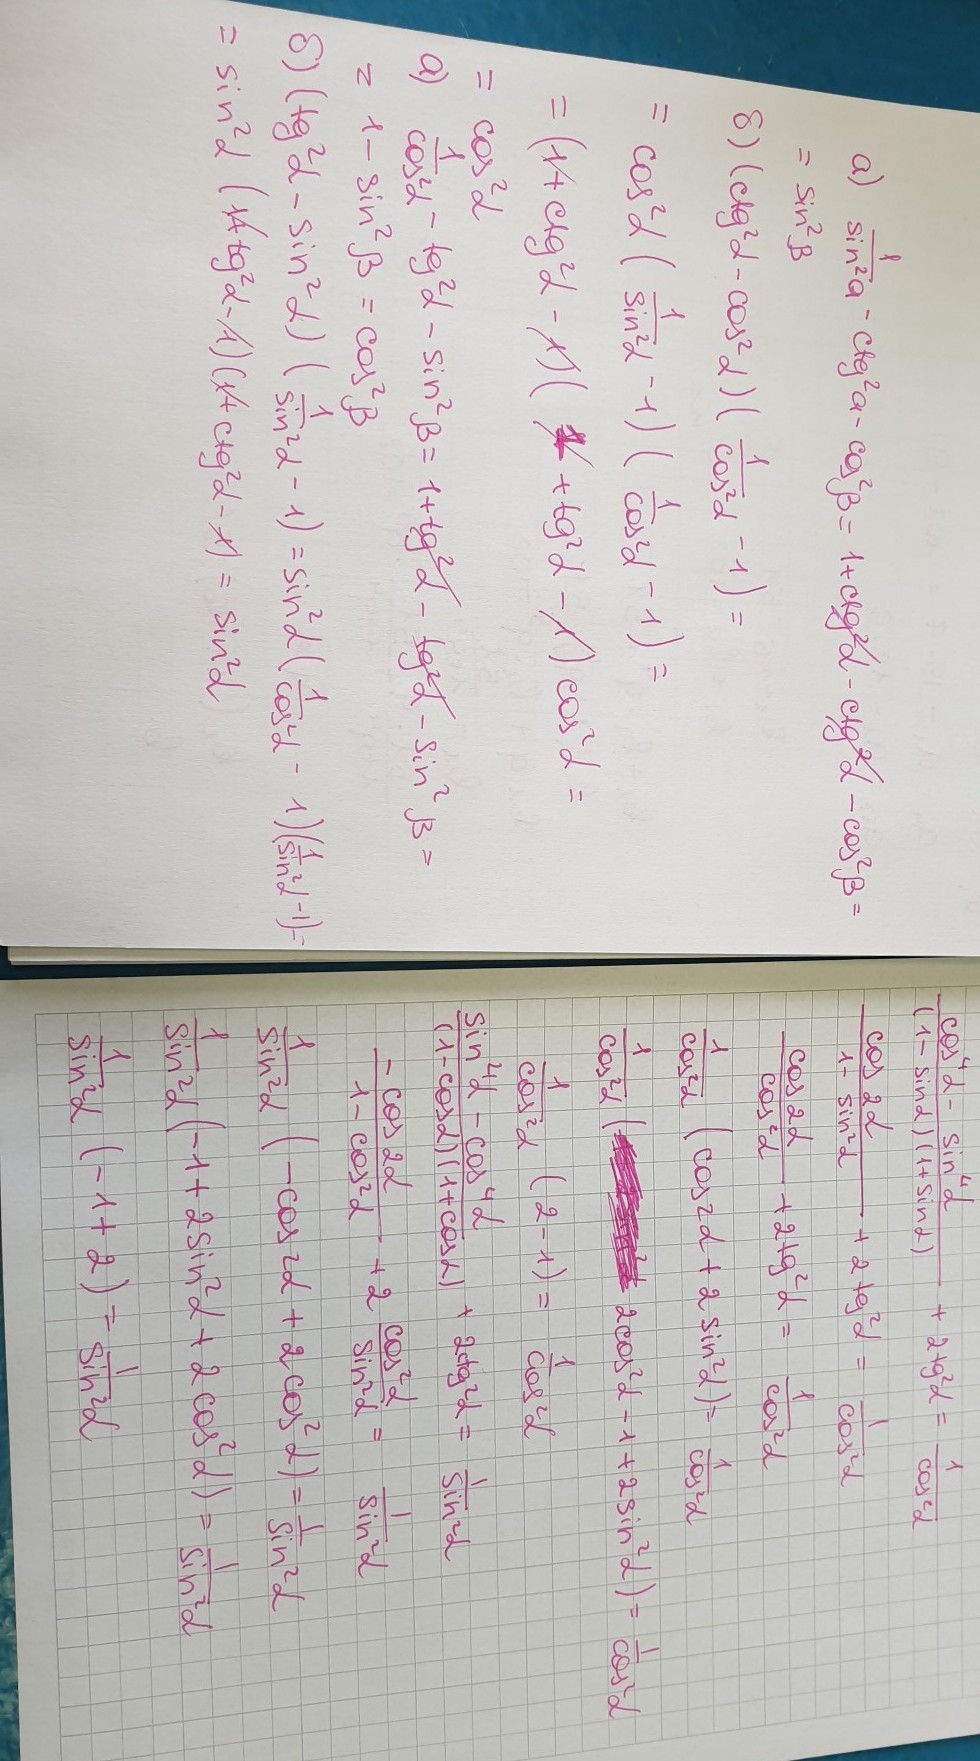 а) 1/sin²a - ctg²a - cos²β = 1 + ctg²α - ctg²α - cos²β =
= sin²β
б) (ctg²α - cos²α)(1/cos²α - 1) =
= cos²α (1/sin²α - 1)(1/cos²α - 1) =
= (1 + ctg²α - 1)(1 + tg²α - 1) cos²α =
= cos²α
а) 1/cos²α - tg²α - sin²β = 1 + tg²α - tg²α - sin²β =
= 1 - sin²β = cos²β
б) (tg²α - sin²α)(1/sin²α - 1) = sin²α (1/cos²α - 1)(1/sin²α - 1) =
= sin²α (1 + tg²α - 1)(1 + ctg²α - 1) = sin²α
(cos⁴α - sin⁴α)/((1 - sinα)(1 + sinα)) + 2tg²α = 1/cos²α
cos2α/(1 - sin²α) + 2tg²α = 1/cos²α
cos2α/cos²α + 2tg²α = 1/cos²α
1/cos²α (cos2α + 2sin²α) = 1/cos²α
1/cos²α (2cos²α - 1 + 2sin²α) = 1/cos²α
1/cos²α (2 - 1) = 1/cos²α
(sin⁴α - cos⁴α)/((1 - cosα)(1 + cosα)) + 2ctg²α = 1/sin²α
-cos2α/(1 - cos²α) + 2 cos²α/sin²α = 1/sin²α
1/sin²α (-cos2α + 2cos²α) = 1/sin²α
1/sin²α (-1 + 2sin²α + 2cos²α) = 1/sin²α
1/sin²α (-1 + 2) = 1/sin²α